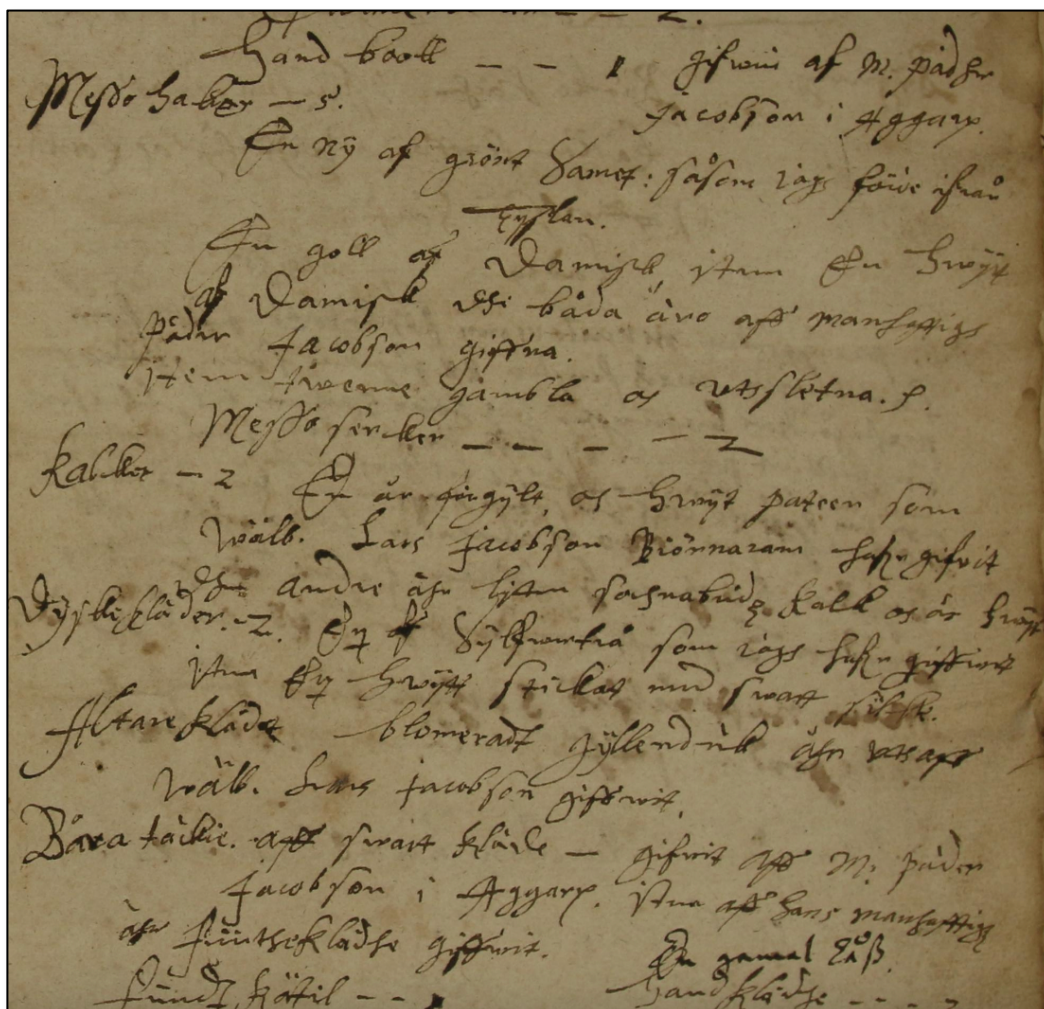 Hand book — — 1 gifwin af M. Pädher
Messo haker — 5. Jacobson i Aggarp.
En ny af grönt Samet: såsom iagh före ifrån
Tysklan.
En goll af Damisk, item En hwyt
af Damisk dhe båda äro aff manhafftigh
Päder Jacobson giffna.
item twenne gambla och vthsletna.
Messo serker — — — — 2
Kalker — 2 En är förgylt, och hwyt pateen som
Wälb. Lars Jacobson Biörnaram hafr gifvit
dhe andre ähr liten sochnabudz kalk och är hwyt
Dyske kläder. — 2. En af Sylffwertrå som iagh hafr giffwit
item En hwytt stickat med swart silke.
Altare klädet blomeradt gyllenduk ähr
Wälb. Lars Jacobson giffwit.
Båra täckie. aff swart kläde — gifvit aff M. Päder
Jacobson i Aggarp. item aff hans manhafftigh
ähr funtheklädhe giffwit. En gamal
funtz kätil — — 1 handklädhe — — — —